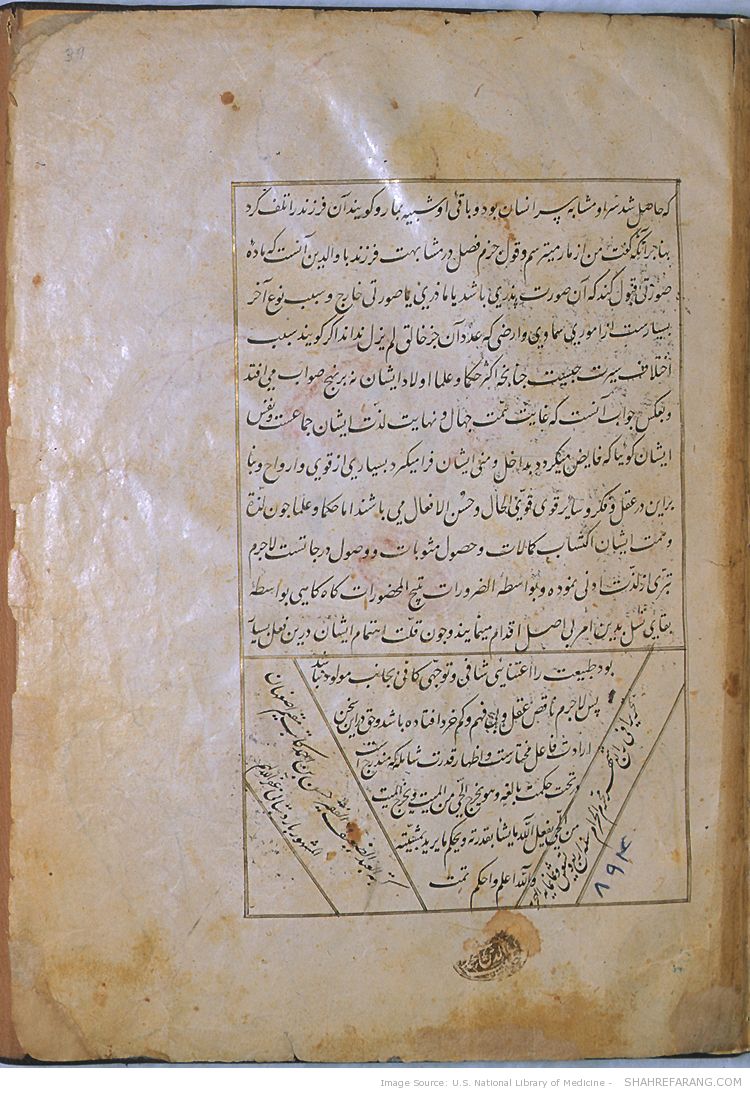 که حاصل شد سر او مشابه سر انسان بود و باقی او شبیه بمار و کویند آن فرزند را تلف کرد
بنابر آنکه گفت من از مار میترسم و قول جزم فصل در مشابهت فرزند با والدین آنست که ماده
صورتی قبول کند که آن صورت پدری باشد یا مادری یا صورتی خارج و سبب نوع آخر
بسیارست از امور سماوی و ارضی که عدد آن جز خالق لم یزل نداند اگر کویند سبب
اختلاف سیرت چیست چنانچه اکثر حکما و علما اولاد ایشان نه بر نهج صواب می افتد
و بعکس جواب آنست که غایت همت جهال و نهایت لذت ایشان جماعست و نفس
ایشان کویا که فایض میکردد بداخل و منی ایشان فرا میکیرد بسیاری از قوی و ارواح و بنا
براین در عقل و فکر و سایر قوی قوی الحال و حسن الافعال می باشند اما حکما و علما چون لذة
و همت ایشان اکتساب کمالات و حصول مثوبات و وصول درجاتست لاجرم
تبری از لذت ادنی نموده و بواسطه الضرورات تبیح المحضورات کاه کاهی بواسطه
بقای نسل بدین امر بی اصل اقدام مینمایند و چون قلت اهتمام ایشان درین فعل بسیار
بود طبیعت را اعتنایی شافی و توجهی کافی بجانب مولود نباشد
پس لاجرم ناقص عقل و فهم و کم خرد افتاده باشد و حق درین سخن
ارادت فاعل مختارست و اظهار قدرت شامله که مندرج است
در تحت حکمت بالغه و هو یخرج الحی من المیت و یخرج المیت
من الحی یفعل الله ما یشاء بقدرته و یحکم ما یرید بمشیته
و الله اعلم و احکم تمت
کتبه العبد الضعیف الفقیر حسن بن احمد
المشهور
۸۹۴
39
Image Source: U.S. National Library of Medicine - SHAHREFARANG.COM